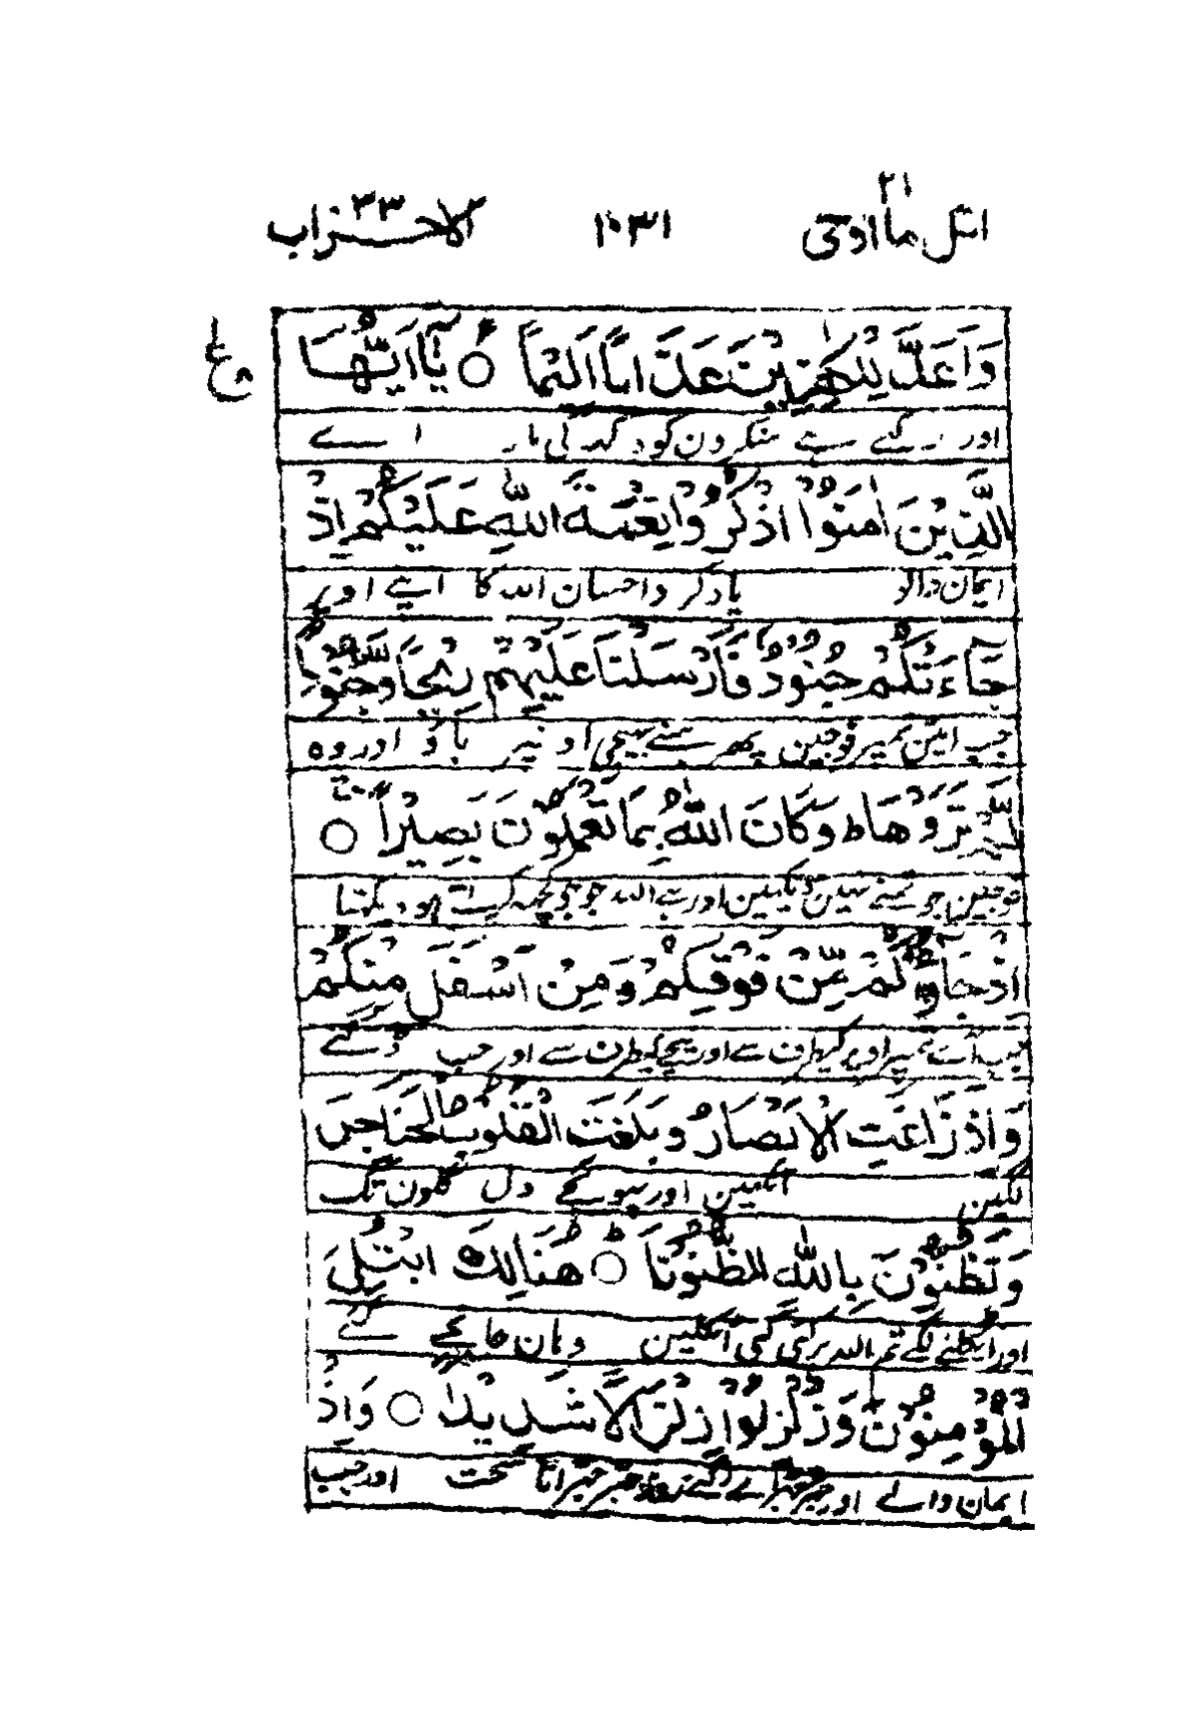 اتل ما اوحی ۲۱ ۱۰۳۱ الاحزاب ۳۳
وَاَعَدَّ لِلْكٰفِرِيْنَ عَذَابًا اَلِيْمًا ○ يٰۤاَيُّهَا
اور رکہے ہے منکرون کو دکہہ کی مار اے
الَّذِيْنَ اٰمَنُوْا اذْكُرُوْا نِعْمَةَ اللّٰهِ عَلَيْكُمْ اِذْ
ایمان والو یاد کرو احسان اللہ کا اپنے اوپر
جَآءَتْكُمْ جُنُوْدٌ فَاَرْسَلْنَا عَلَيْهِمْ رِيْحًا وَّجُنُوْدًا
جب آئین تمپر فوجین پھر ہمنے بہیجی اونپر باؤ اور وہ
لَّمْ تَرَوْهَا ط وَكَانَ اللّٰهُ بِمَا تَعْمَلُوْنَ بَصِيْرًا ○
فوجین جو تمنے نہین دیکہین اور ہے اللہ جو کچہہ کرتے ہو دیکہتا
اِذْ جَآءُوْكُمْ مِّنْ فَوْقِكُمْ وَمِنْ اَسْفَلَ مِنْكُمْ
جب آئے تمپر اوپر کیطرف سے اور نیچے کیطرف سے اور جب ڈگنے
وَاِذْ زَاغَتِ الْاَبْصَارُ وَبَلَغَتِ الْقُلُوْبُ الْحَنَاجِرَ
لگین آنکہین اور پہونچے دل گلون تک
وَتَظُنُّوْنَ بِاللّٰهِ الظُّنُوْنَا ○ هُنَالِكَ ابْتُلِيَ
اور اٹکلنے لگے تم اللہ پر کئی کئی اٹکلین وہان جانچے گئے
الْمُؤْمِنُوْنَ وَزُلْزِلُوْا زِلْزَالًا شَدِيْدًا ○ وَاِذْ
ایمان والے اور سخت اور جب